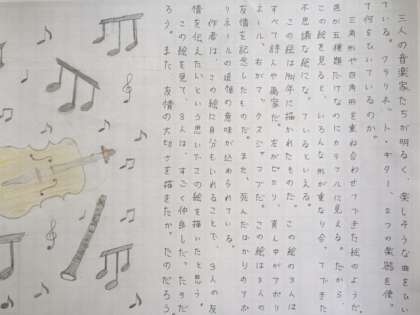 三人の音楽家たちが明るく、楽しそうな曲をひい
ている。クラリネット・ギター、2つの楽器を使っ
て何をひいているのか。
三角形や四角形を重ね合わせてできた絵のようだ。
色が五種類だけなのにカラフルに見える。だから、
この絵を見ると、いろんな形が重なり合ってできた
不思議な絵になっているといえる。
この絵は年に描かれたものだ。この絵の3人は
すべて詩人や画家だ。左がピカソ、真ん中がアポリ
ネール、右がマックス・ジャコブだ。この絵は3人の
友情を記念したものだ。また、死んだばかりのアポ
リネールの追悼の意味が込められている。
作者は、この絵に自分もいれることで、3人の友
情を伝えたいという思いでこの絵を描いたと思う。
この絵を見て、3人は、すごく仲良しだったのだ
ろう。また、友情の大切さを描きたかったのだろう。